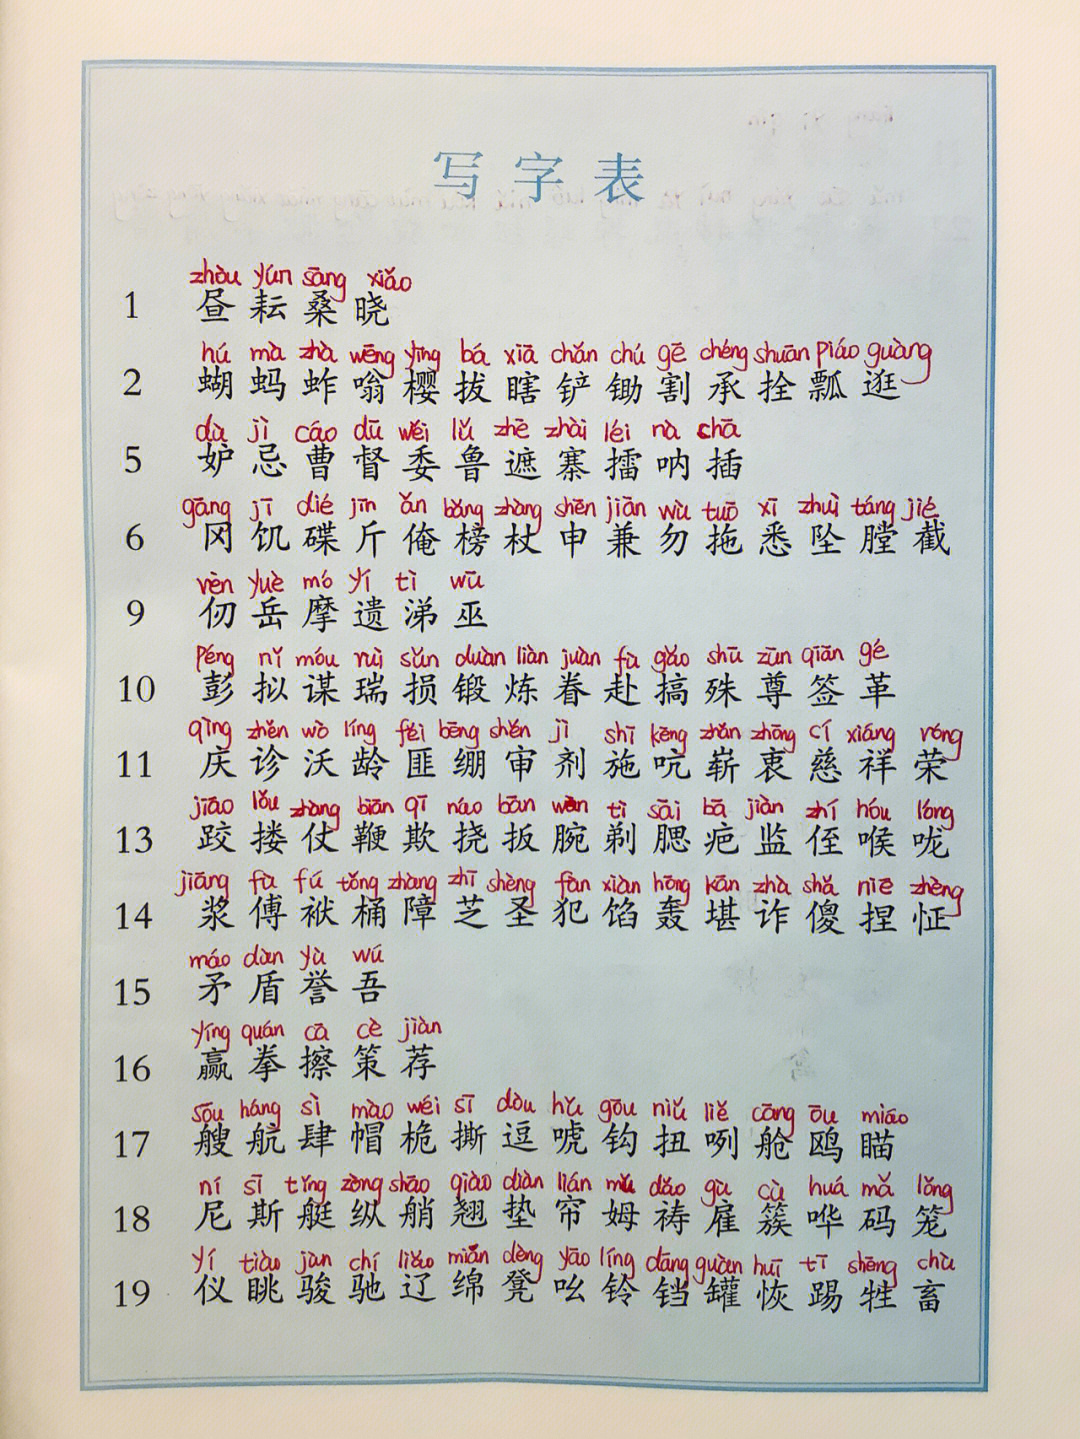 写字表
zhòu yún sāng xiǎo
1 昼 耘 桑 晓
hú mà zhà wēng yīng bá xiā chǎn chú gē chéng shuān piáo guàng
2 蝴 蚂 蚱 嗡 樱 拔 瞎 铲 锄 割 承 拴 瓢 逛
dù jì cáo dū wěi lǔ zhē zhài léi nà chā
5 妒 忌 曹 督 委 鲁 遮 寨 擂 呐 插
gāng jī dié jīn ǎn bǎng zhàng shēn jiān wù tuō xī zhuì táng jié
6 冈 饥 碟 斤 俺 榜 杖 申 兼 勿 拖 悉 坠 膛 截
rèn yuè mó yí tì wū
9 仞 岳 摩 遗 涕 巫
péng nǐ móu ruì sǔn duàn liàn juàn fù gǎo shū zūn qiān gé
10 彭 拟 谋 瑞 损 锻 炼 眷 赴 搞 殊 尊 签 革
qìng zhěn wò líng fěi bēng shěn jì shī kēng zhǎn zhōng cí xiáng róng
11 庆 诊 沃 龄 匪 绷 审 剂 施 吭 崭 衷 慈 祥 荣
jiāo lǒu zhàng biān qī náo bān wàn tì sāi bā jiàn zhí hóu lóng
13 跤 搂 仗 鞭 欺 挠 扳 腕 剃 腮 疤 监 侄 喉 咙
jiāng fù fú tǒng zhàng zhī shèng fàn xiàn hōng kān zhà shǎ niē zhèng
14 浆 傅 袱 桶 障 芝 圣 犯 馅 轰 堪 诈 傻 捏 怔
máo dùn yù wú
15 矛 盾 誉 吾
yíng quán cā cè jiàn
16 赢 拳 擦 策 荐
sōu háng sì mào wéi sī dòu hǔ gōu niǔ liě cāng ōu miáo
17 艘 航 肆 帽 桅 撕 逗 唬 钩 扭 咧 舱 鸥 瞄
ní sī tǐng zòng shāo qiào diàn lián mǔ dǎo gù cù huá mǎ lǒng
18 尼 斯 艇 纵 艄 翘 垫 帘 姆 祷 雇 簇 哗 码 笼
yí tiào jùn chí liáo mián dèng yāo líng dāng guàn huī tī shēng chù
19 仪 眺 骏 驰 辽 绵 凳 吆 铃 铛 罐 恢 踢 牲 畜